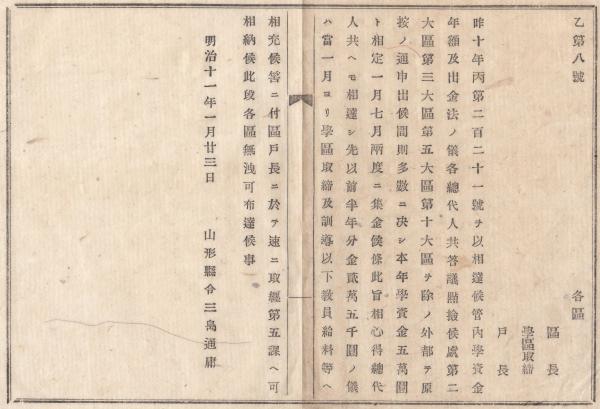 乙第八號
各區
區長
學區取締
戸長
昨十年丙第二百二十一號ヲ以相達候管内學資金
年額及出金法ノ儀各總代人共答議點撿候處第二
大區第三大區第五大區第十大區ヲ除ノ外都テ原
按ノ通申出候間則多數ニ决シ本年學資金五萬圓
ト相定一月七月兩度ニ集金候條此旨相心得總代
人共ヘモ相達シ先以前半年分金貳萬五千圓ノ儀
ハ當一月ヨリ學區取締及訓導以下敎員給料等ヘ
相充候筈ニ付區戸長ニ於テ速ニ取纒第五課ヘ可
相納候此段各區無洩可布達候事
明治十一年一月廿三日
山形縣令三島通庸